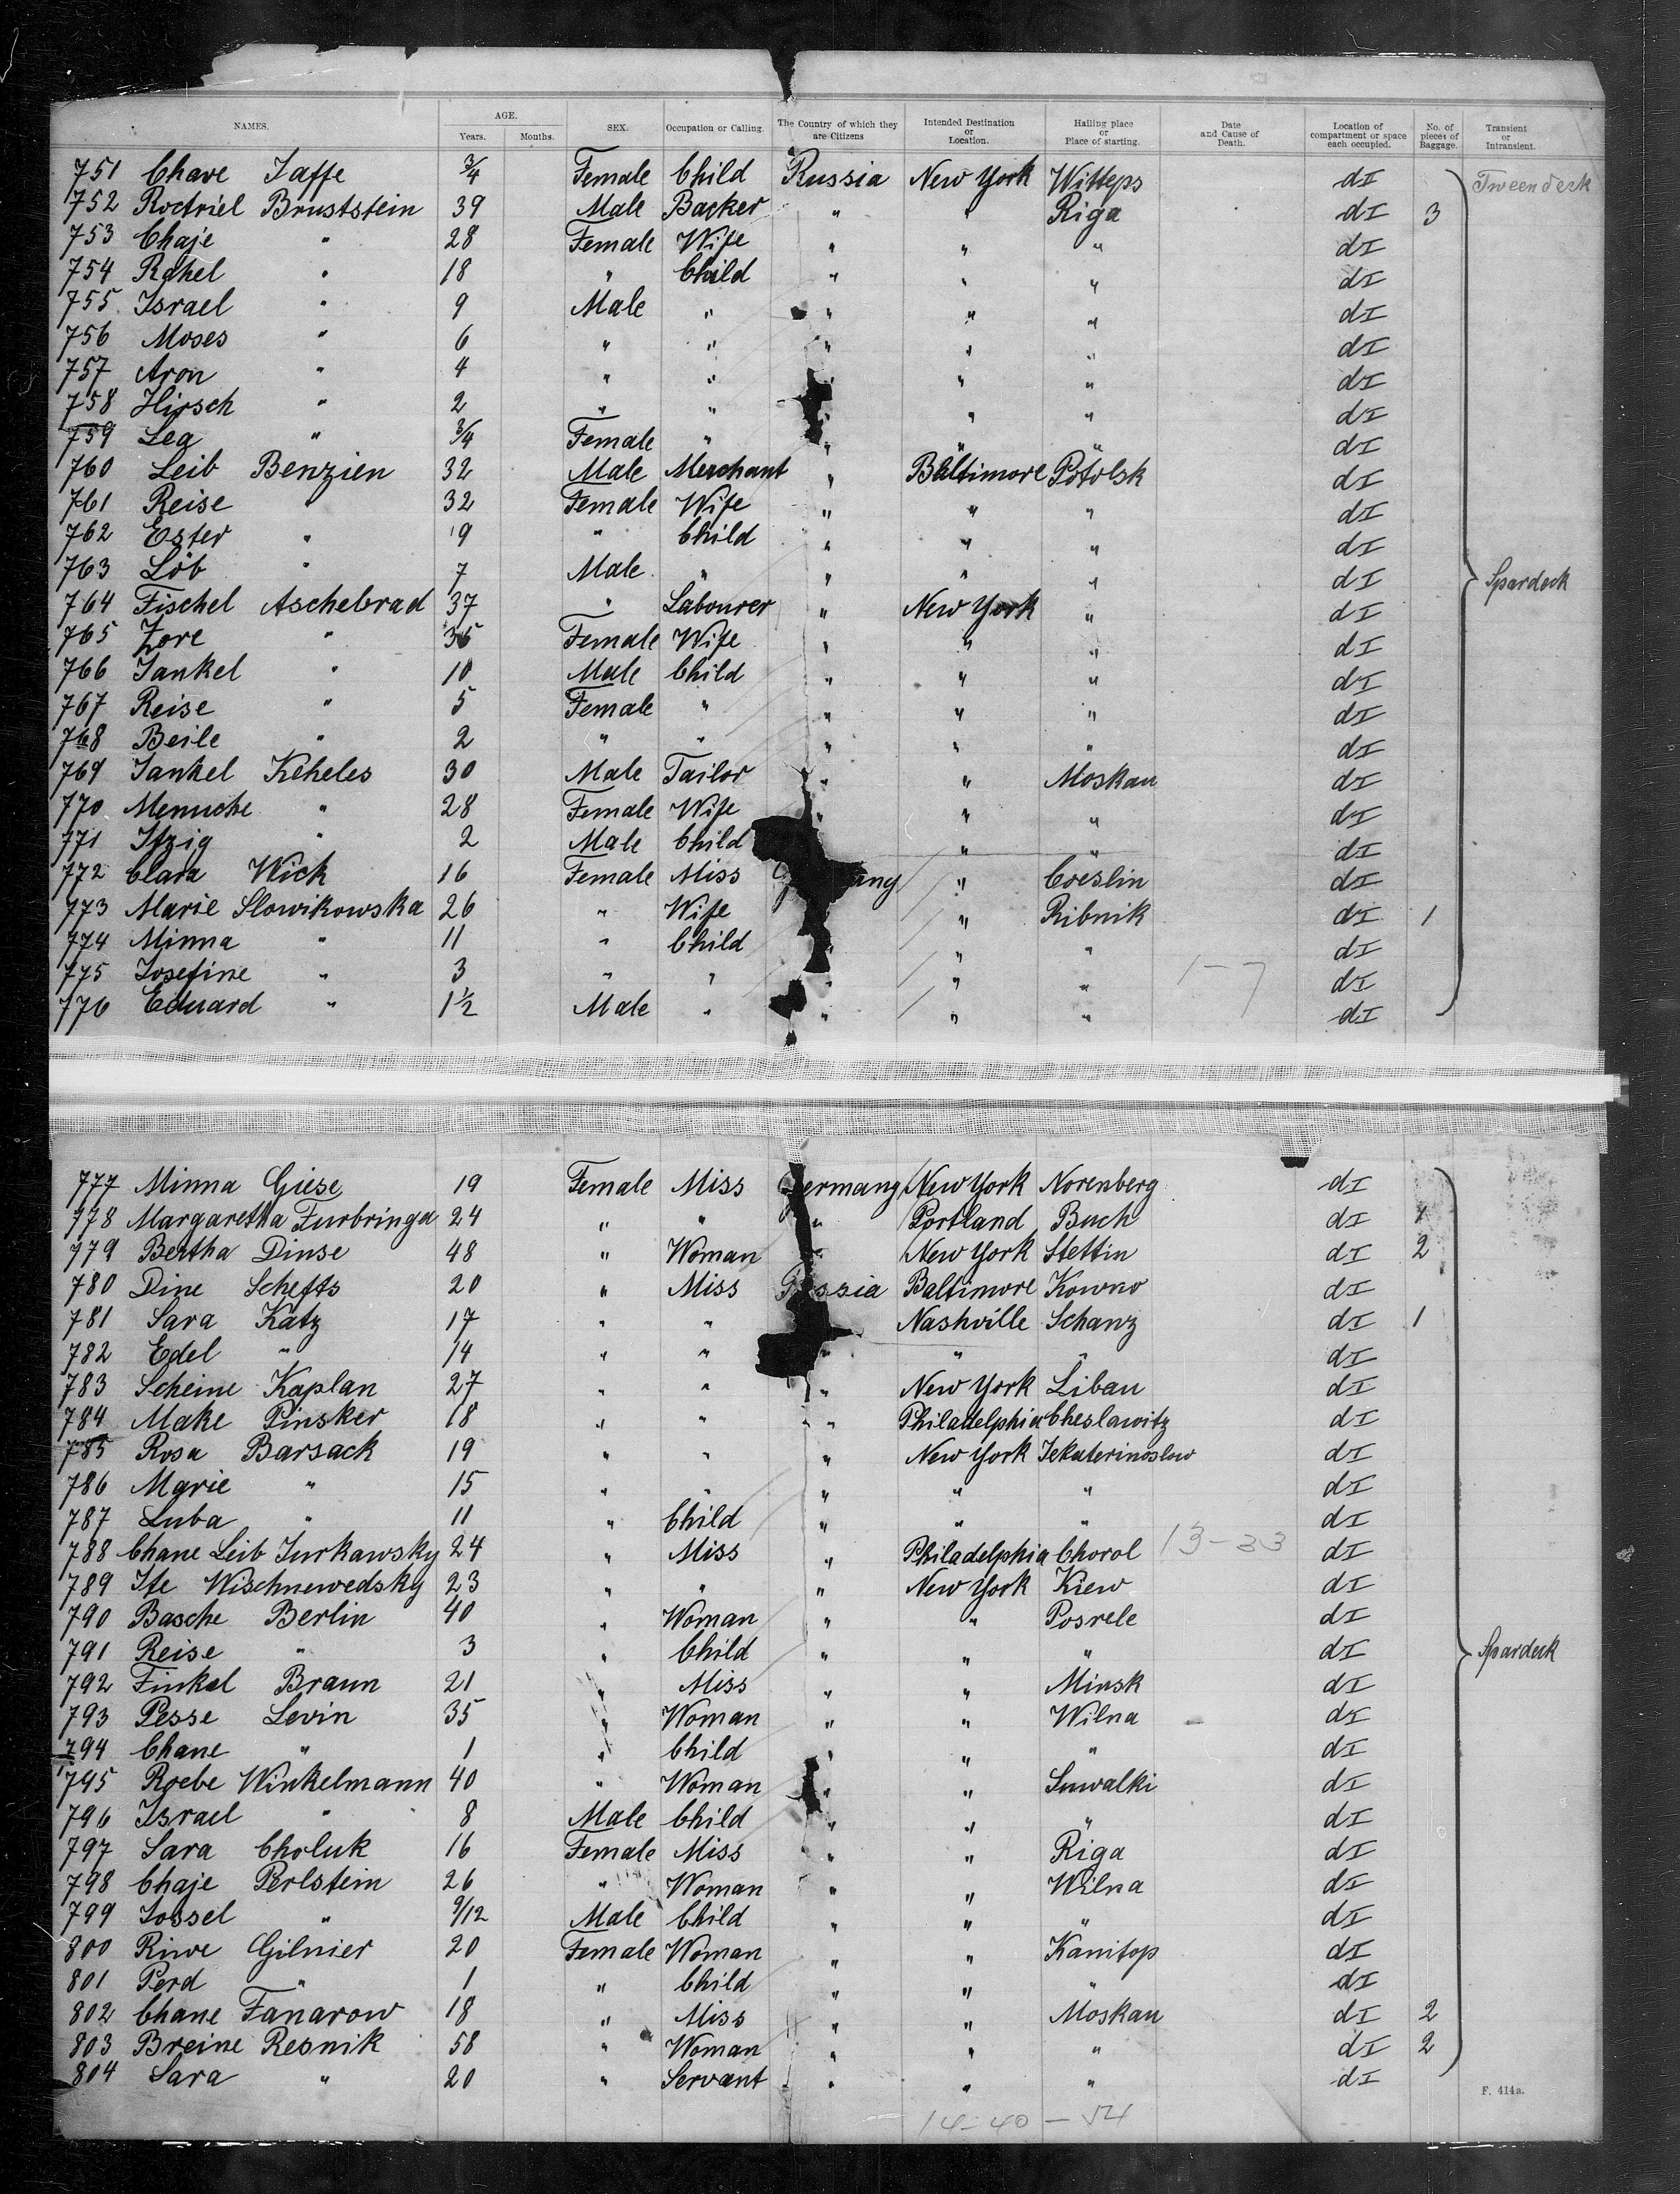 NAMES. AGE. Years. Months. SEX. Occupation or Calling. The Country of which they are Citizens Intended Destination or Location. Hailing place or Place of starting. Date and Cause of Death. Location of compartment or space each occupied. No. of pieces of Baggage. Transient or Intransient.
751 Chave Jaffe 3/4 Female Child Russia New York Witteps dI Tweendeck
752 Roctriel Bruststein 39 Male Backer " " Riga dI 3
753 Chaje " 28 Female Wife " " " dI
754 Rahel " 18 " Child " " " dI
755 Israel " 9 Male " " " " dI
756 Moses " 6 " " " " " dI
757 Aron " 4 " " " " " dI
758 Hirsch " 2 " " " " " dI
759 Lea " 3/4 Female " " " " dI
760 Leib Benzien 32 Male Merchant " Baltimore Potolsk dI
761 Reise " 32 Female Wife " " " dI
762 Ester " 9 " Child " " " dI
763 Löb " 7 Male " " " " dI Spardeck
764 Fischel Aschebrad 37 " Labourer " New York " dI
765 Zore " 36 Female Wife " " " dI
766 Jankel " 10 Male Child " " " dI
767 Reise " 5 Female " " " " dI
768 Beile " 2 " " " " " dI
769 Jankel Keheles 30 Male Tailor " " Moskau dI
770 Menuche " 28 Female Wife " " " dI
771 Itzig " 2 Male Child " " dI
772 Clara Wick 16 Female Miss " Coeslin dI
773 Marie Slowikowska 26 " Wife " Ribnik dI 1
774 Minna " 11 " Child " " " dI
775 Josefine " 3 " " " " " 1-7 dI
776 Eduard " 1 1/2 Male " " " " dI
777 Minna Giese 19 Female Miss Germany New York Norenberg dI
778 Margaretha Furbringa 24 " " " Portland Buch dI 1
779 Bertha Dinse 48 " Woman " New York Stettin dI 2
780 Dine Schefts 20 " Miss Russia Baltimore Kowno dI
781 Sara Katz 17 " " Nashville Schanz dI 1
782 Edel " 14 " " " " " dI
783 Scheine Kaplan 27 " " " New York Libau dI
784 Make Pinsker 18 " " " Philadelphia Cheslawitz dI
785 Rosa Barsack 19 " " " New York Jekaterinoslow dI
786 Marie " 15 " " " " " dI
787 Luba " 11 " Child " " " dI
788 Chane Leib Jurkawsky 24 " Miss " Philadelphia Chorol 13-33 dI
789 Ite Wischnewedsky 23 " " " New York Kiew dI
790 Basche Berlin 40 " Woman " " Posrele dI
791 Reise " 3 " Child " " " dI Spardeck
792 Finkel Braun 21 " Miss " " Minsk dI
793 Pesse Levin 35 " Woman " " Wilna dI
794 Chane " 1 " Child " " " dI
795 Roebe Winkelmann 40 " Woman " " Suwalki dI
796 Israel " 8 Male Child " " " dI
797 Sara Choluk 16 Female Miss " " Riga dI
798 Chaje Perlstein 26 " Woman " " Wilna dI
799 Jossel " 9/12 Male Child " " " dI
800 Riwe Gilnier 20 Female Woman " " Kanitop dI
801 Perd " 1 " Child " " " dI
802 Chane Fanarow 18 " Miss " " Moskau dI 2
803 Breine Resnik 58 " Woman " " " dI 2
804 Sara " 20 " Servant " " " dI
F. 414a.
14-40-54